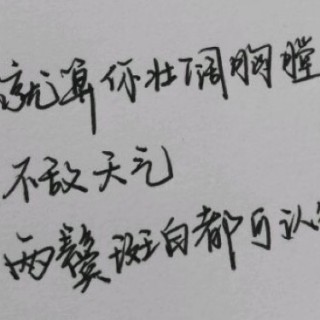 就算你壮阔胸膛
不敌天气
两鬓斑白都可认